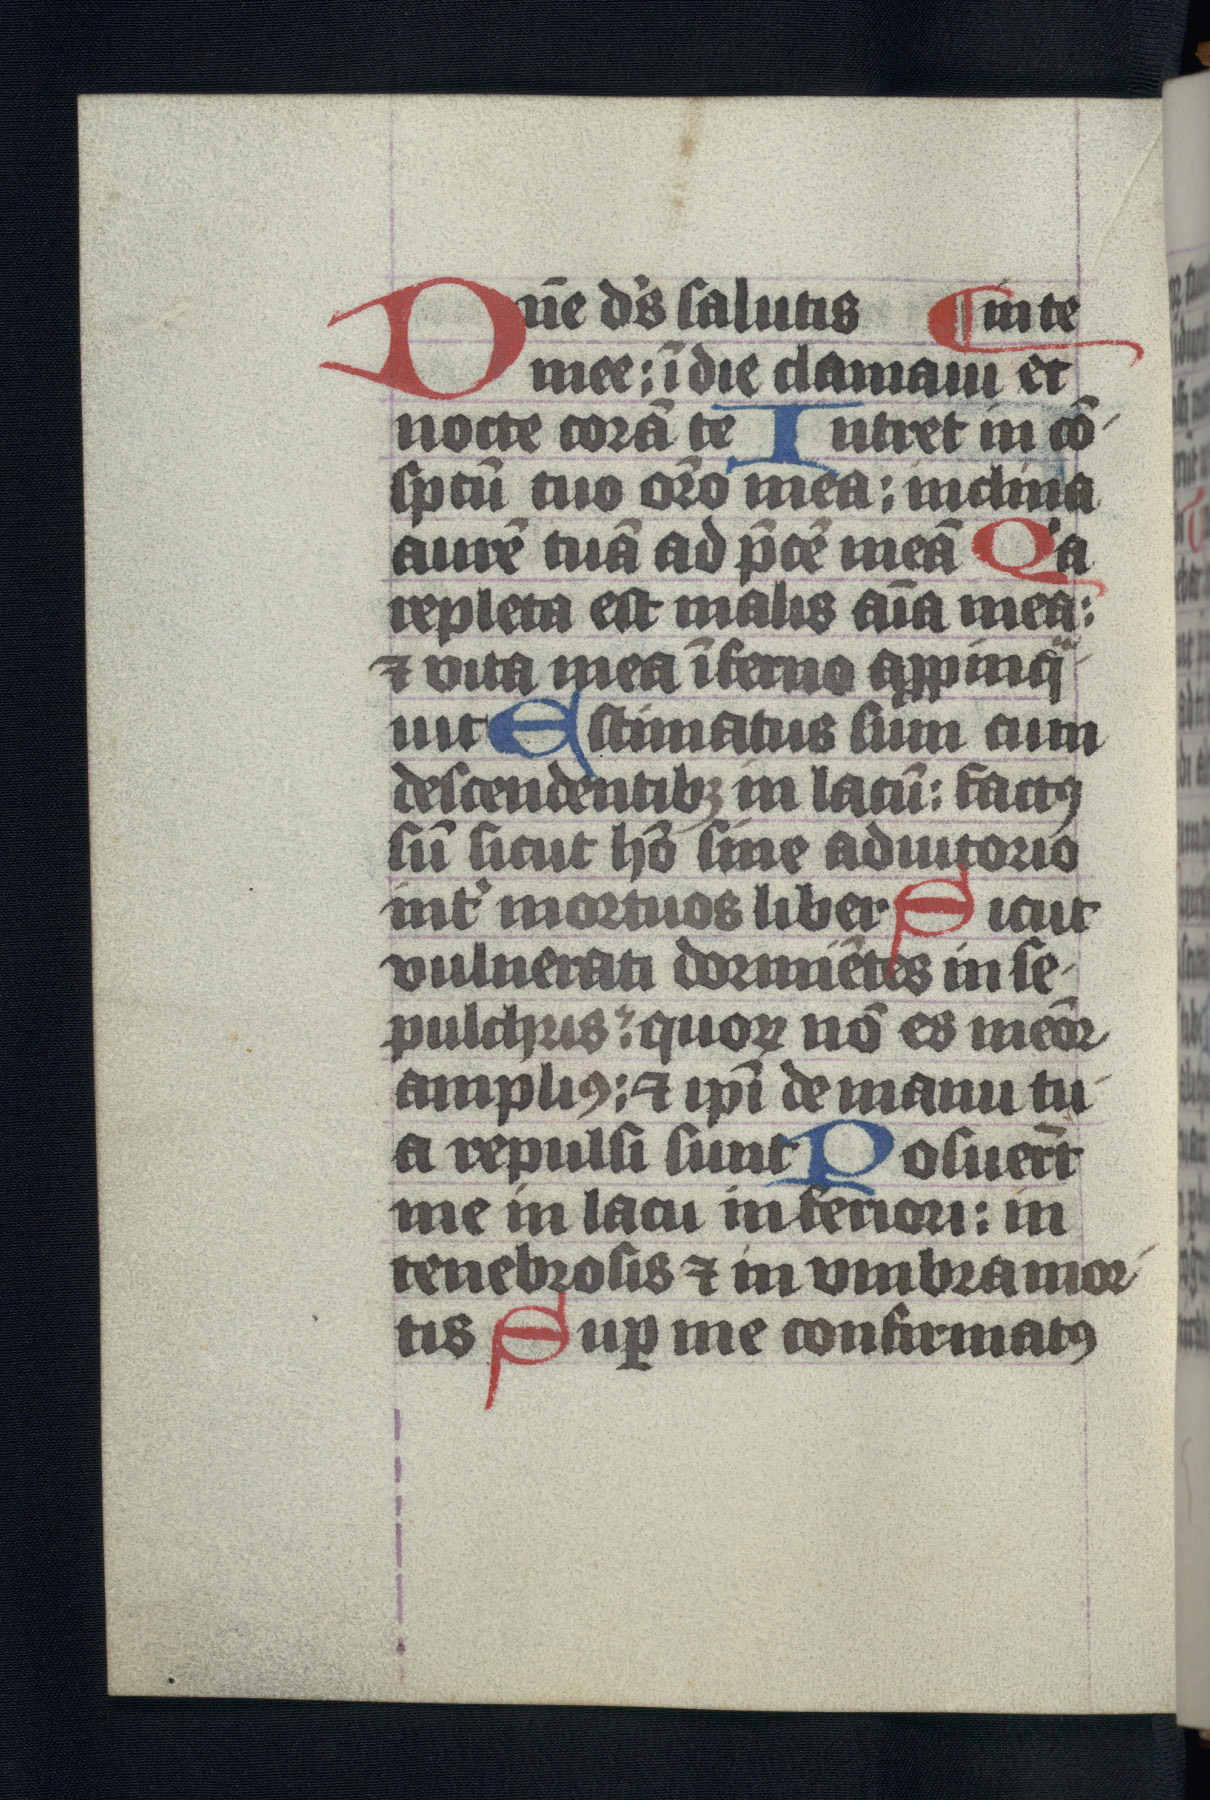 Dn̄e ds̄ salutis ¶ in te
mee: ī die clamaui et
nocte corā te Intret in cō-
spctū tuo or̄o mea: inclina
aurē tuā ad p̄cē meā Qͥa
repleta est malis aīa mea:
⁊ vita mea īferno aꝓpinqͣ-
uit Estimatus sum cum
descendentibꝫ in lacū: factꝯ
sū sicut hō sine adiutorio
int̾ mortuos liber Sicut
vulnerati dormiētes in se-
pulchris: quoꝝ nō es mēor
ampliꝯ: ⁊ ip̄i de manu tu-
a repulsi sunt Posuer̄t
me in lacu inferiori: in
tenebrosis ⁊ in vmbra mor-
tis Suꝑ me confirmatꝯ